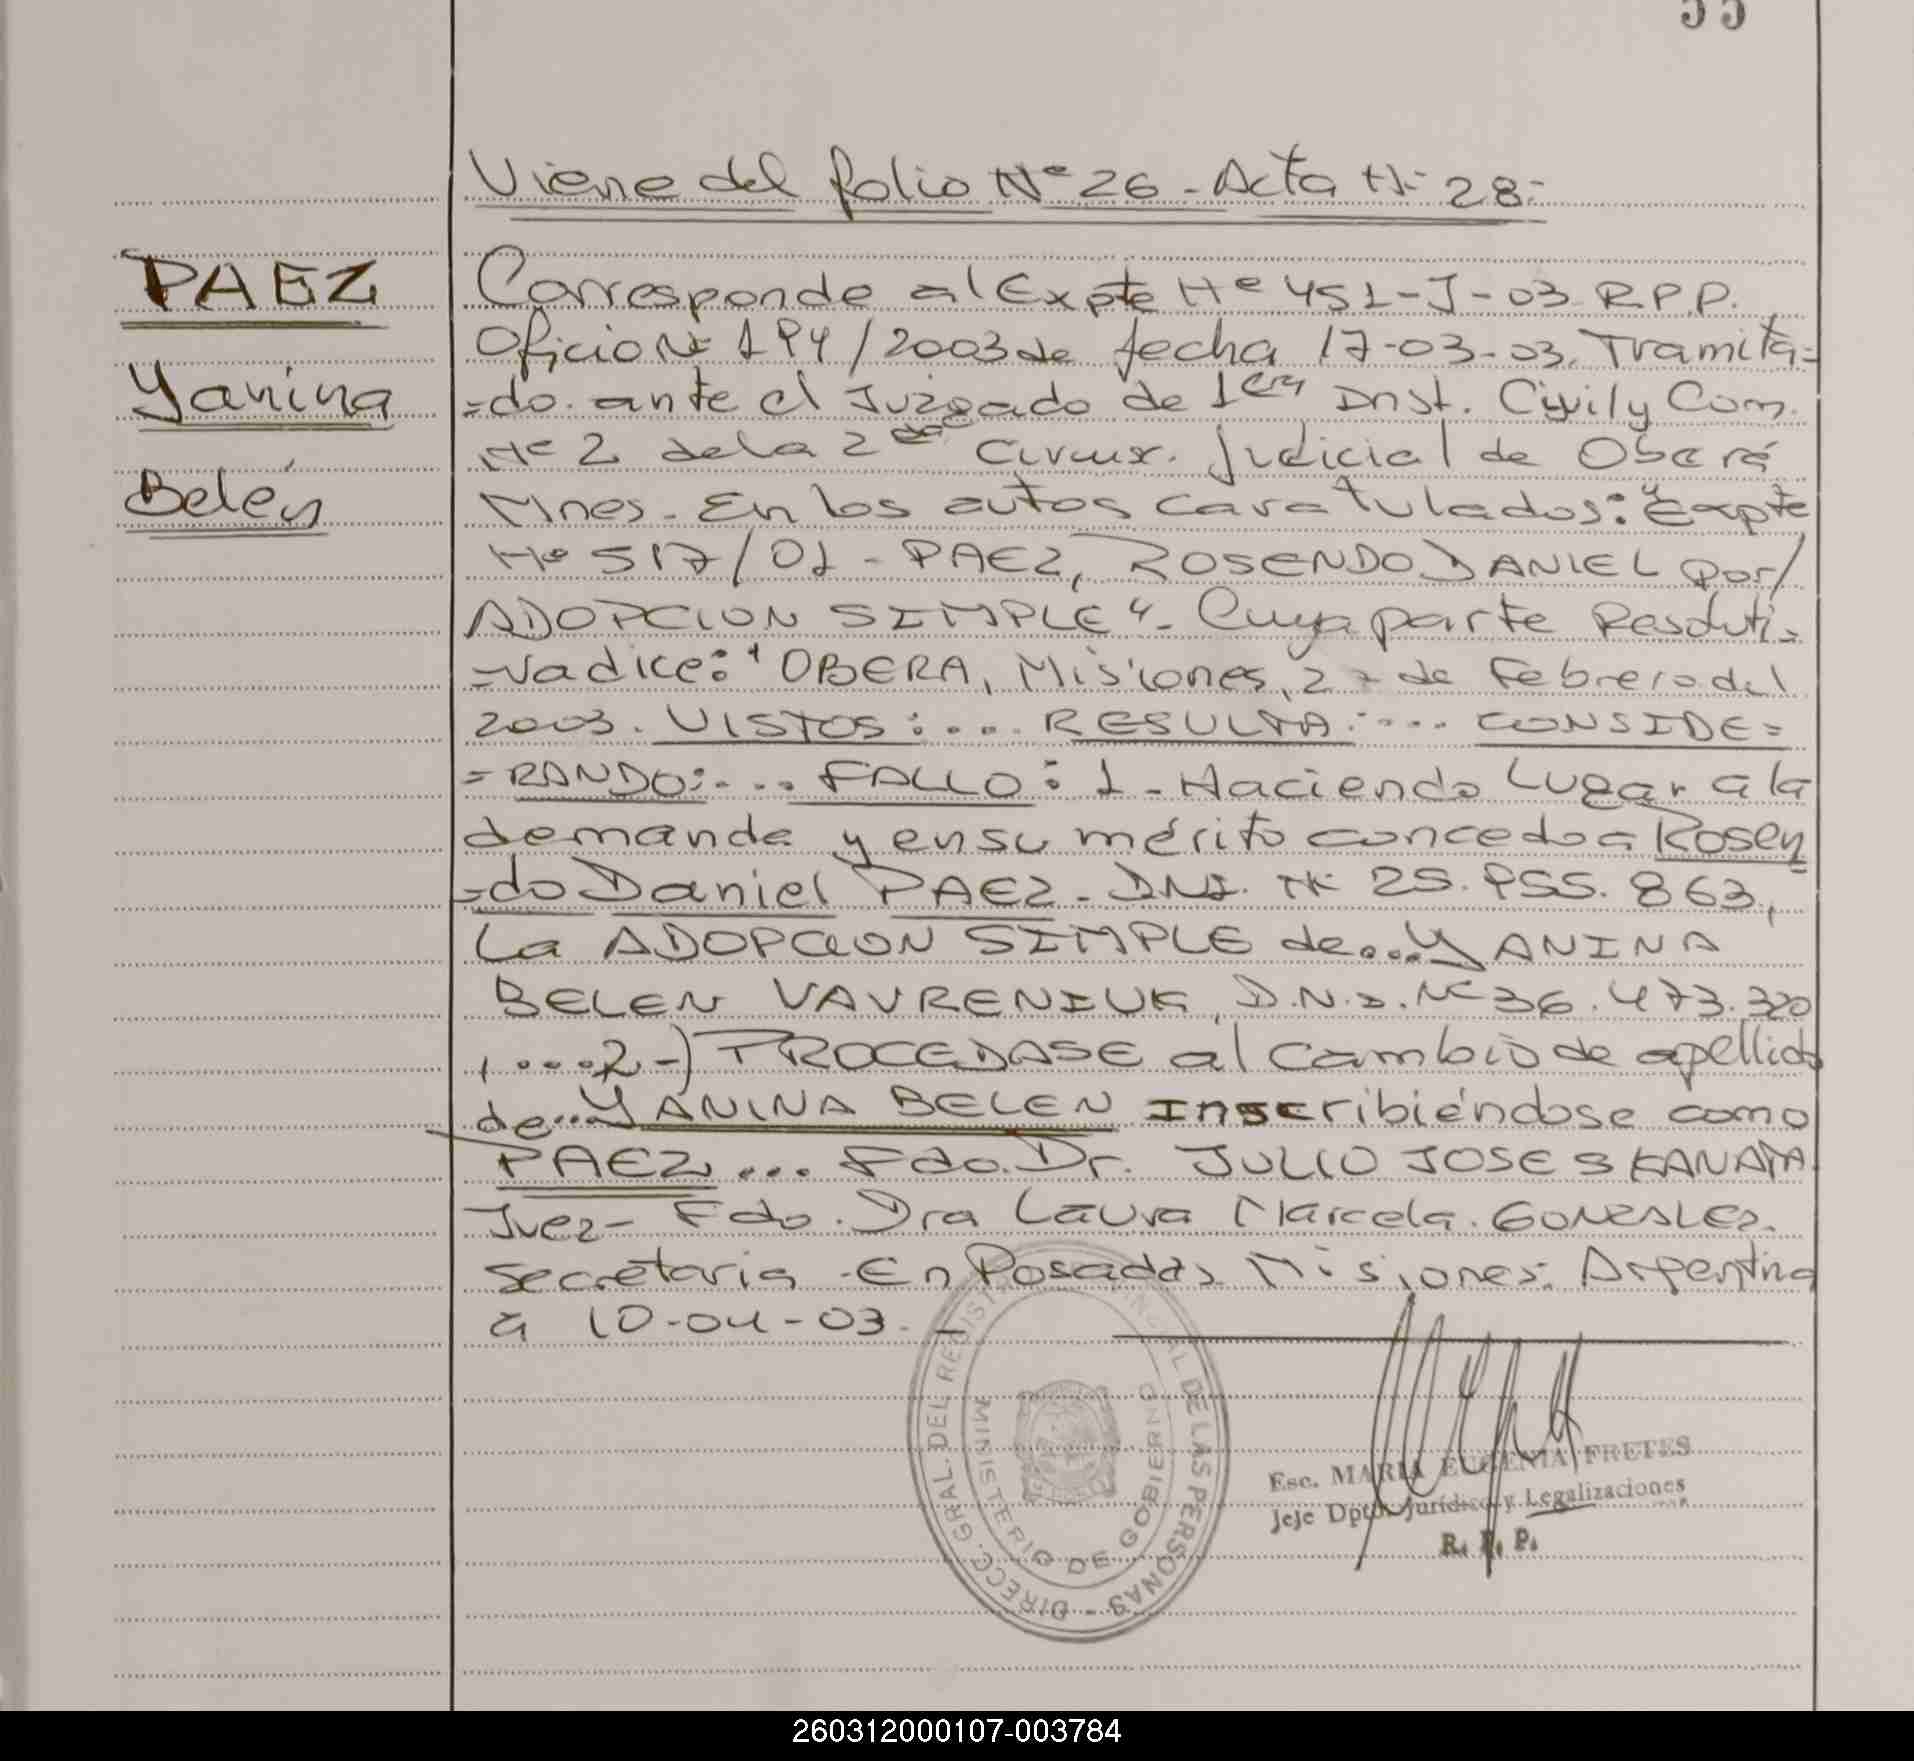 55
Viene del folio Nº 26 - Acta Nº 28-
PAEZ
Yanina
Belén
Corresponde al Expte Nº 451-J-03 R.P.P.
Oficio Nº 194/2003 de fecha 17-03-03. Tramita=
=do. ante el Juzgado de 1era Inst. Civil y Com.
Nº 2 de la 2da Circunx. Judicial de Oberá
Mnes. En los autos caratulados: "Expte
Nº 517/01 - PAEZ, ROSENDO DANIEL por/
ADOPCION SIMPLE". Cuya parte Resoluti=
=va dice: "OBERA, Misiones, 27 de Febrero del
2003. VISTOS:... RESULTA:.... CONSIDE=
=RANDO:... FALLO: 1- Haciendo Lugar a la
demanda y en su mérito concedo a Rosen
=do Daniel PAEZ. DNI. Nº 25.955.863,
La ADOPCION SIMPLE de...YANINA
BELEN VAVRENIUK, D.N.I. Nº 36.473.320
,....2-) PROCEDASE al cambio de apellido
de...YANINA BELEN Inscribiéndose como
PAEZ... Fdo. Dr. JULIO JOSE SKANATA
Juez- Fdo. Dra Laura Marcela. GONZALEZ.
Secretaria. En Posadas Misiones. Argentina
a 10-04-03.-
DIRECC. GRAL. DEL REGISTRO PROVINCIAL DE LAS PERSONAS -
MINISTERIO DE GOBIERNO
Esc. MARIA EUGENIA FRETES
Jefe Dpto. Jurídico y Legalizaciones
R. P. P.
260312000107-003784